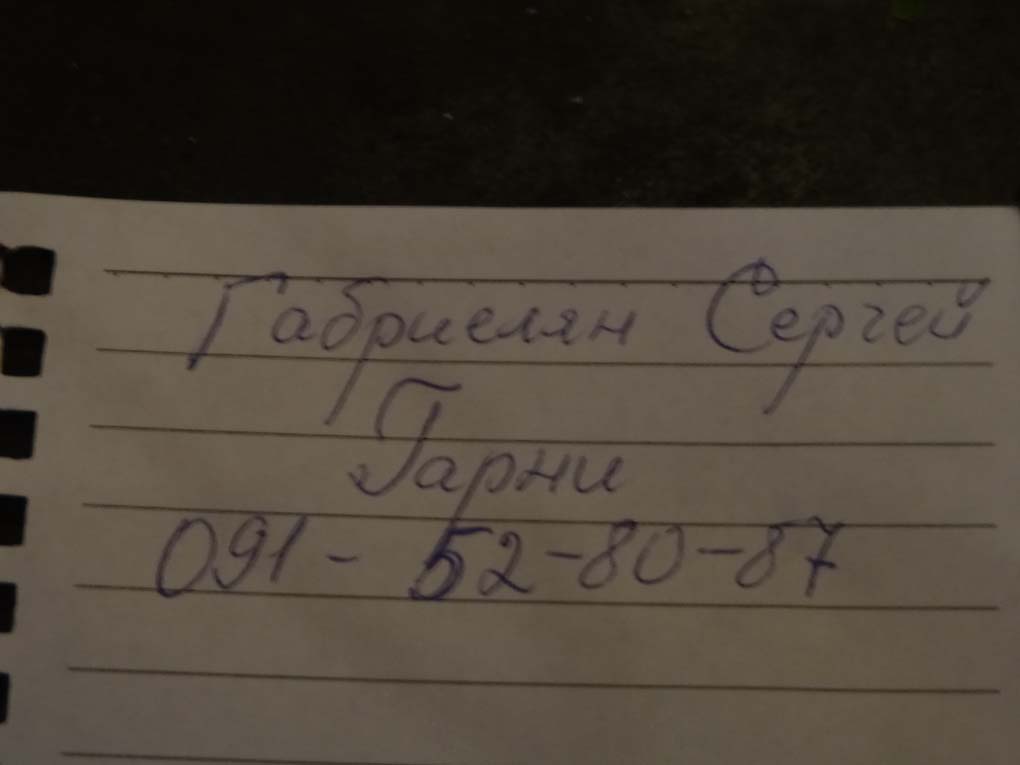 Габриелян Сергей
Гарни
091 - 52-80-87